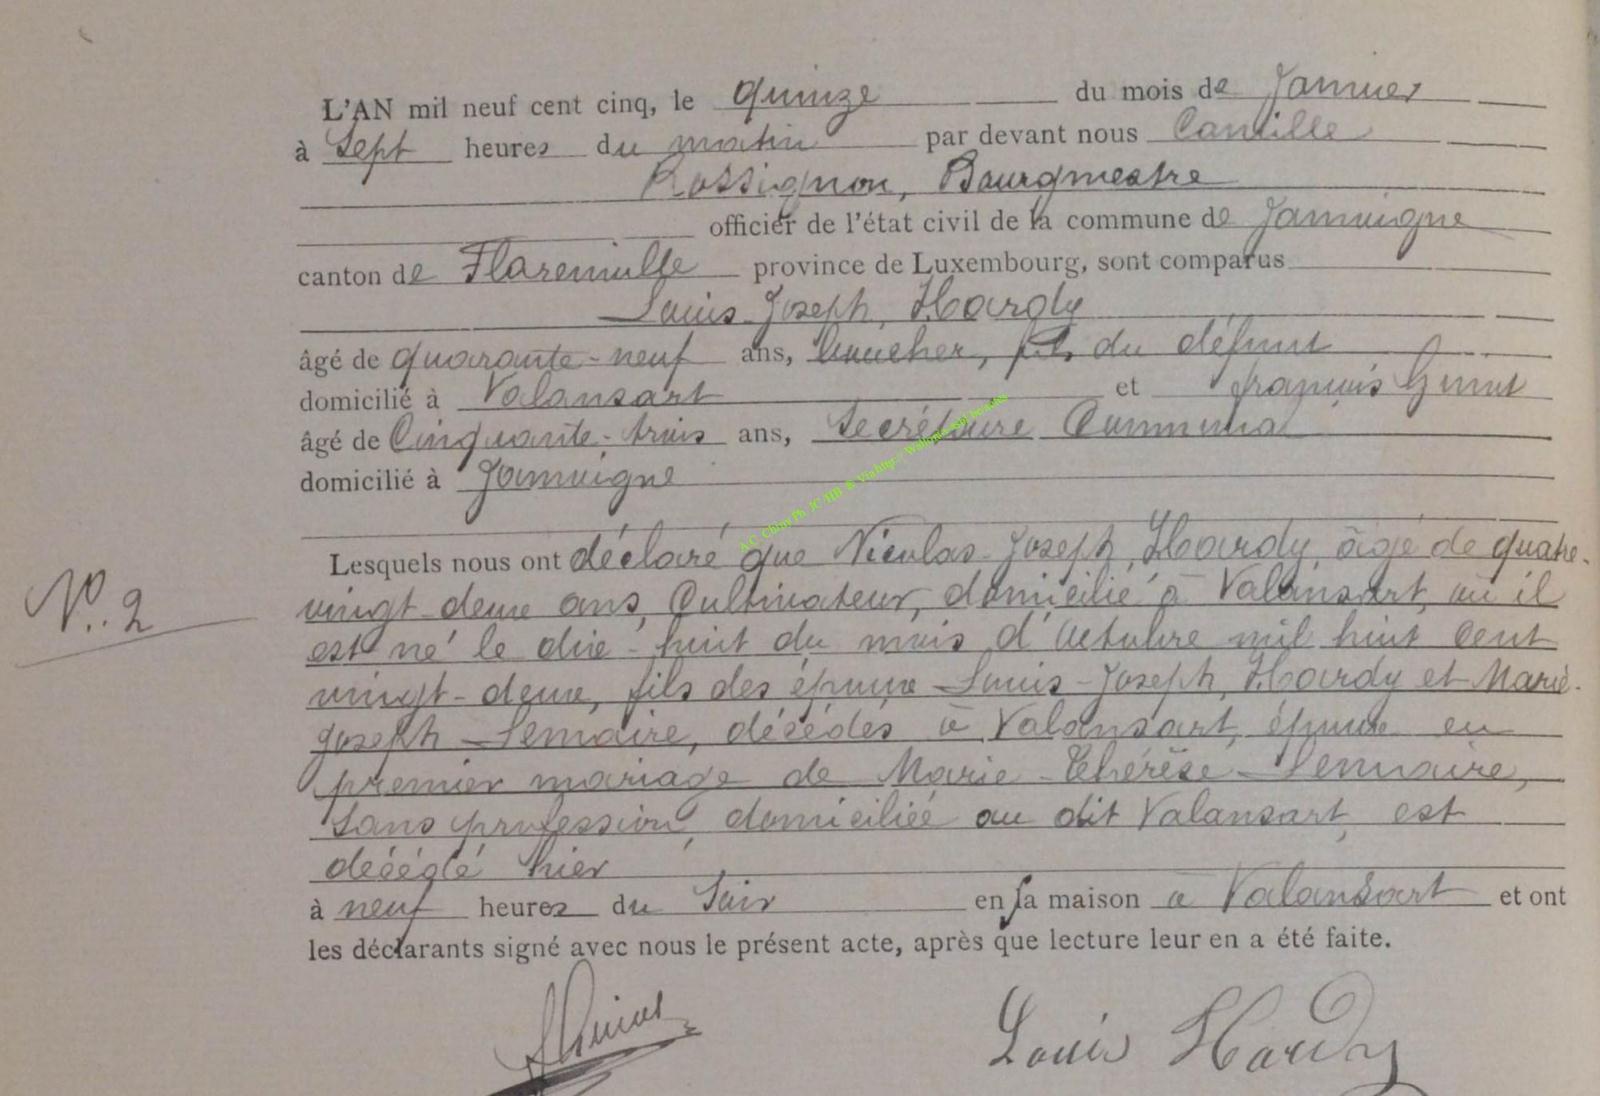 L'AN mil neuf cent cinq, le quinze du mois de Janvier
à Sept heures du matin par devant nous Camille
Rossignon, Bourgmestre
officier de l'état civil de la commune de Jamoigne
canton de Florenville province de Luxembourg, sont comparus
Louis-Joseph, Hardy
âgé de quarante-neuf ans, boucher, fils du défunt
domicilié à Valansart et françois
âgé de Cinquante-trois ans, Secrétaire Communal
domicilié à Jamoigne
Lesquels nous ont déclaré que Nicolas-Joseph, Hardy, âgé de quatre-
N°. 2
vingt-deux ans, Cultivateur, domicilié à Valansart, où il
est né le dix-huit du mois d'Octobre mil huit cent
vingt-deux, fils des époux Louis-Joseph, Hardy et Marie-
Joseph Lemaire, décédés à Valansart, époux en
premier mariage de Marie-Thérèse Lemaire,
Sans profession, domiciliée au dit Valansart, est
décédé hier
à neuf heures du Soir en sa maison à Valansart et ont
les déclarants signé avec nous le présent acte, après que lecture leur en a été faite.
Louis Hardy